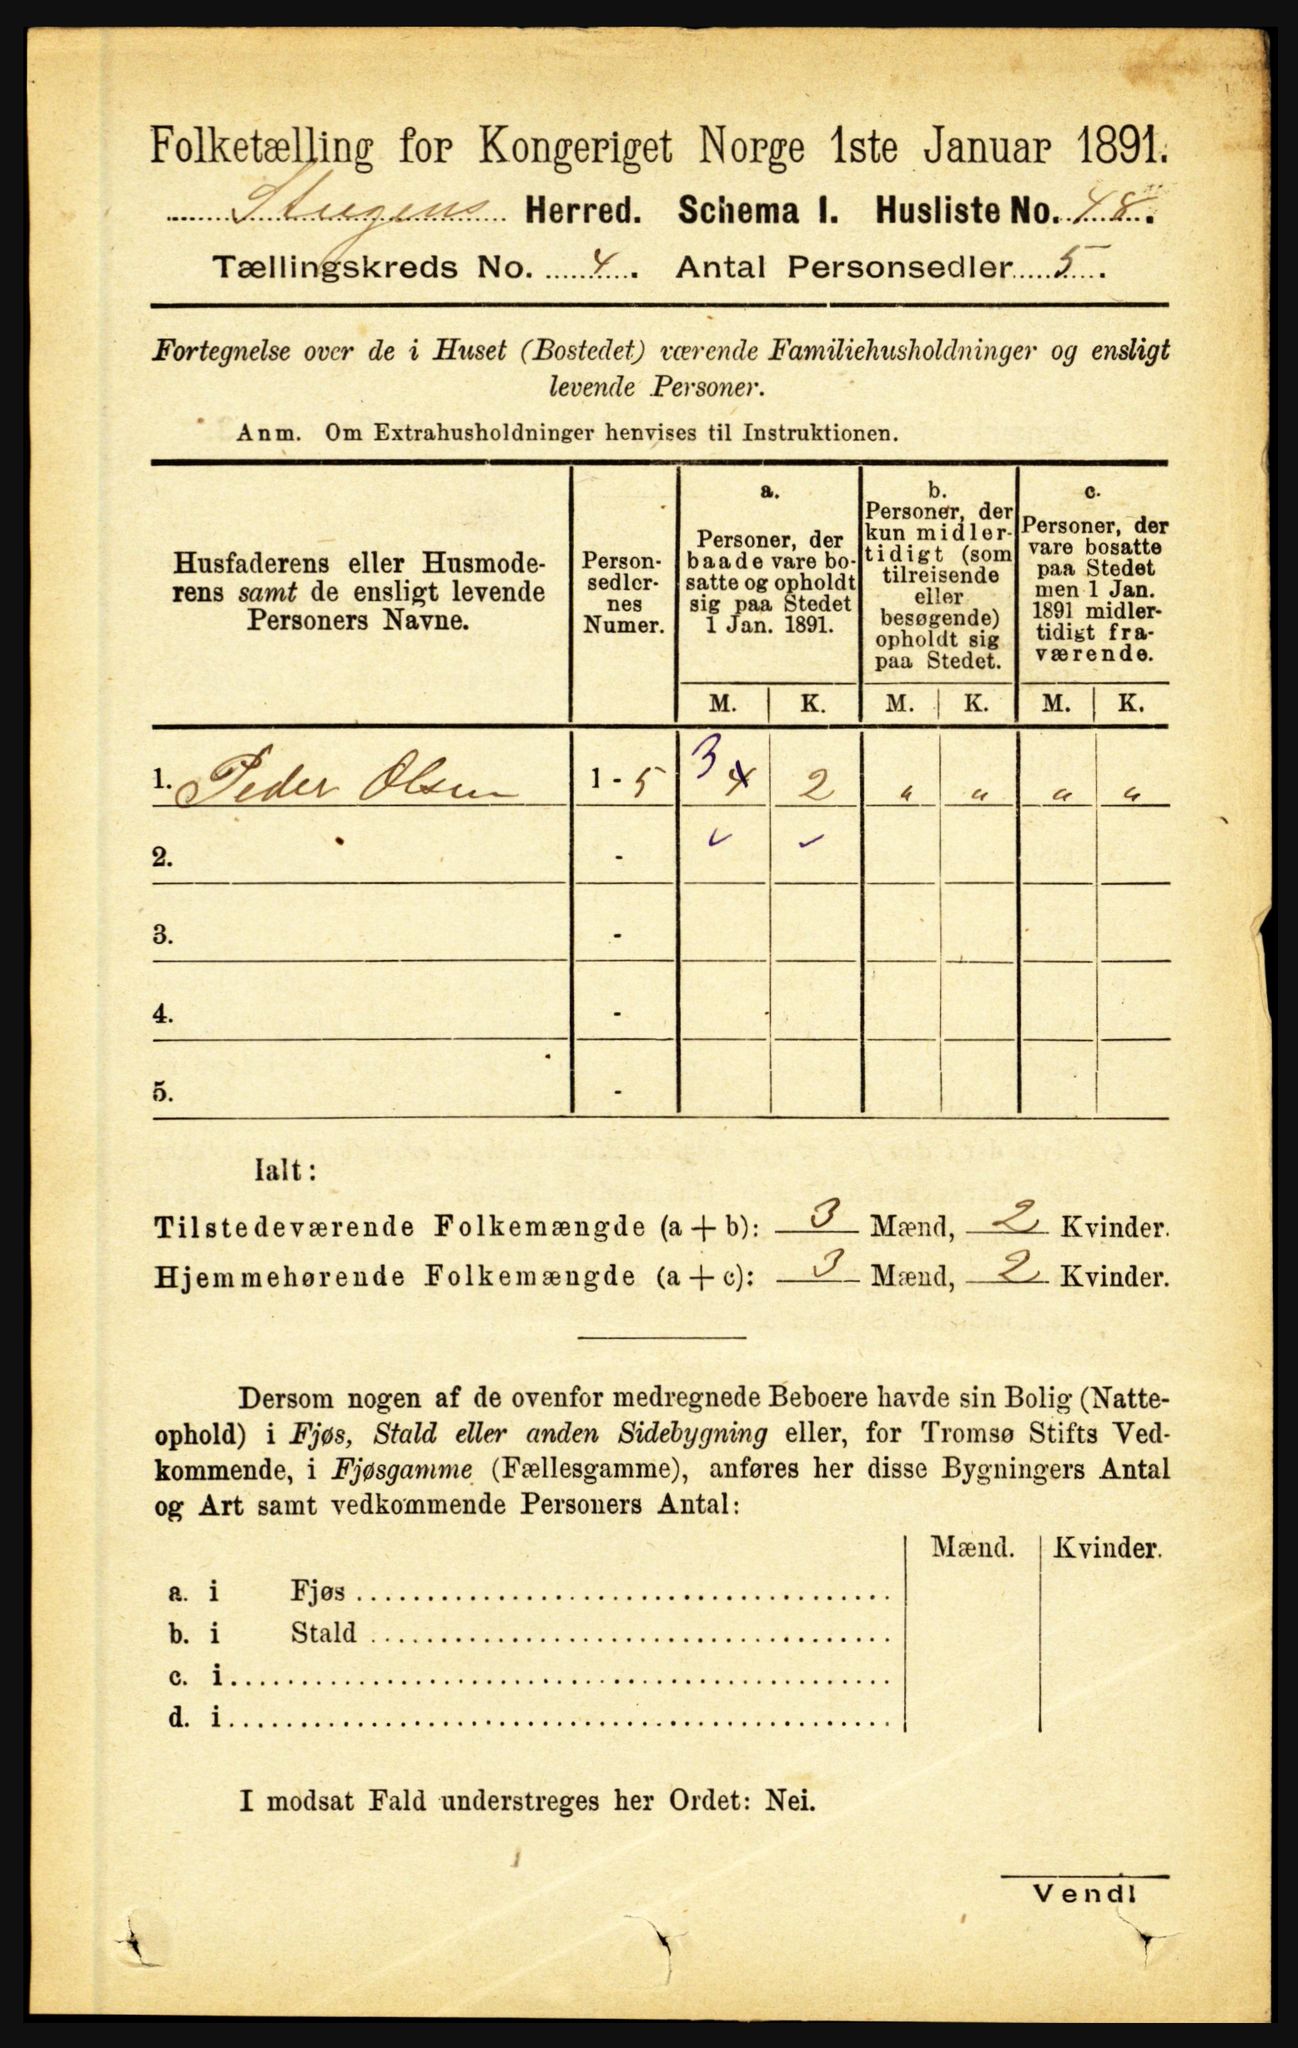 Folketælling for Kongeriget Norge 1ste Januar 1891.
Steigens Herred. Schema I. Husliste No. 48.
Tællingskreds No. 4. Antal Personsedler 5.
Fortegnelse over de i Huset (Bostedet) værende Familiehusholdninger og ensligt
levende Personer.
Anm. Om Extrahusholdninger henvises til Instruktionen.
Husfaderens eller Husmode-
rens samt de ensligt levende
Personers Navne.
Person-
sedler-
nes
Numer.
a.
Personer, der
baade vare bo-
satte og opholdt
sig paa Stedet
1 Jan. 1891.
b.
Personer, der
kun midler-
tidigt (som
tilreisende
eller
besøgende)
opholdt sig
paa Stedet.
c.
Personer, der
vare bosatte
paa Stedet
men 1 Jan.
1891 midler-
tidigt fra-
værende.
M. K. M. K. M. K.
1. Peder Olsen 1 - 5 3 4 2 " " " "
2. - ✓ ✓
3. -
4. -
5. -
Ialt:
Tilstedeværende Folkemængde (a + b): 3 Mænd, 2 Kvinder.
Hjemmehørende Folkemængde (a + c): 3 Mænd, 2 Kvinder.
Dersom nogen af de ovenfor medregnede Beboere havde sin Bolig (Natte-
ophold) i Fjøs, Stald eller anden Sidebygning eller, for Tromsø Stifts Ved-
kommende, i Fjøsgamme (Fællesgamme), anføres her disse Bygningers Antal
og Art samt vedkommende Personers Antal:
Mænd. Kvinder.
a. i Fjøs
b. i Stald
c. i
d. i
I modsat Fald understreges her Ordet: Nei.
Vend!